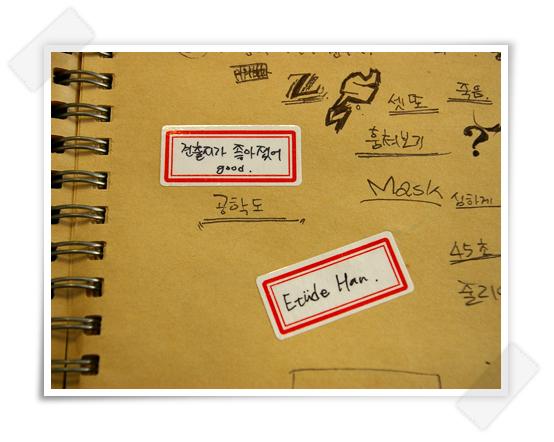 셋또
죽음.
훔쳐보기
?
전출지가 좋아졌어
good.
Mask
심하게
공학도
45초
Etüde Han.
줄리